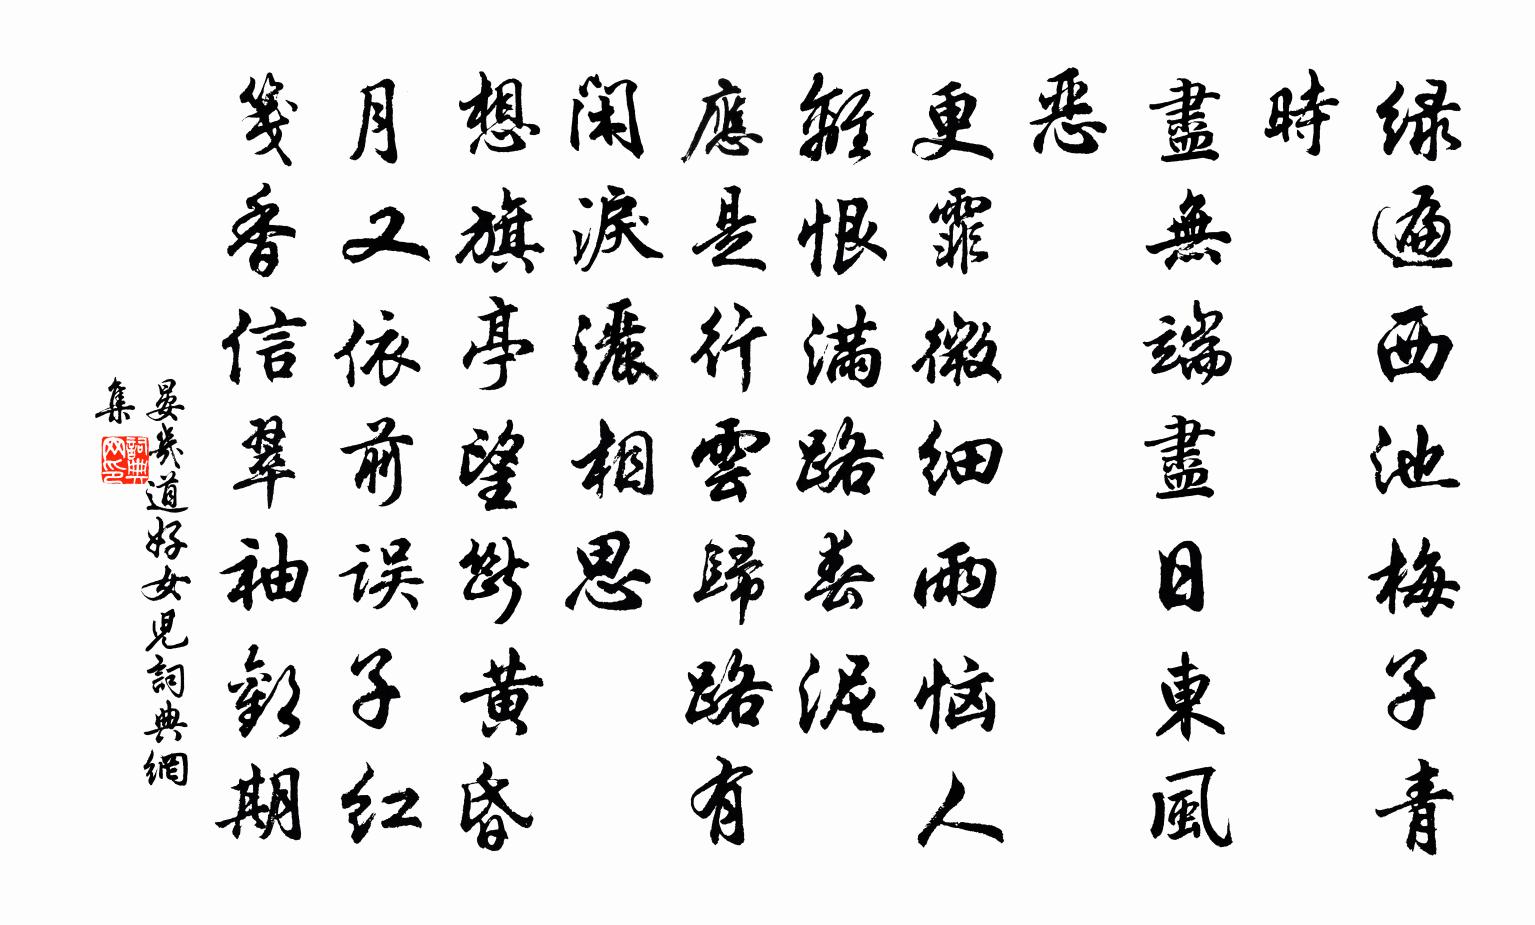 绿遍西池梅子青
時
盡無端盡日東風
恶
更霏微细雨恼人
離恨满路春泥
應是行雲歸路有
闲淚灑相思
想旗亭望斷黄昏
月又依前误子红
箋香信翠袖歡期
晏幾道好女兒詞典網
集
詞典
网印